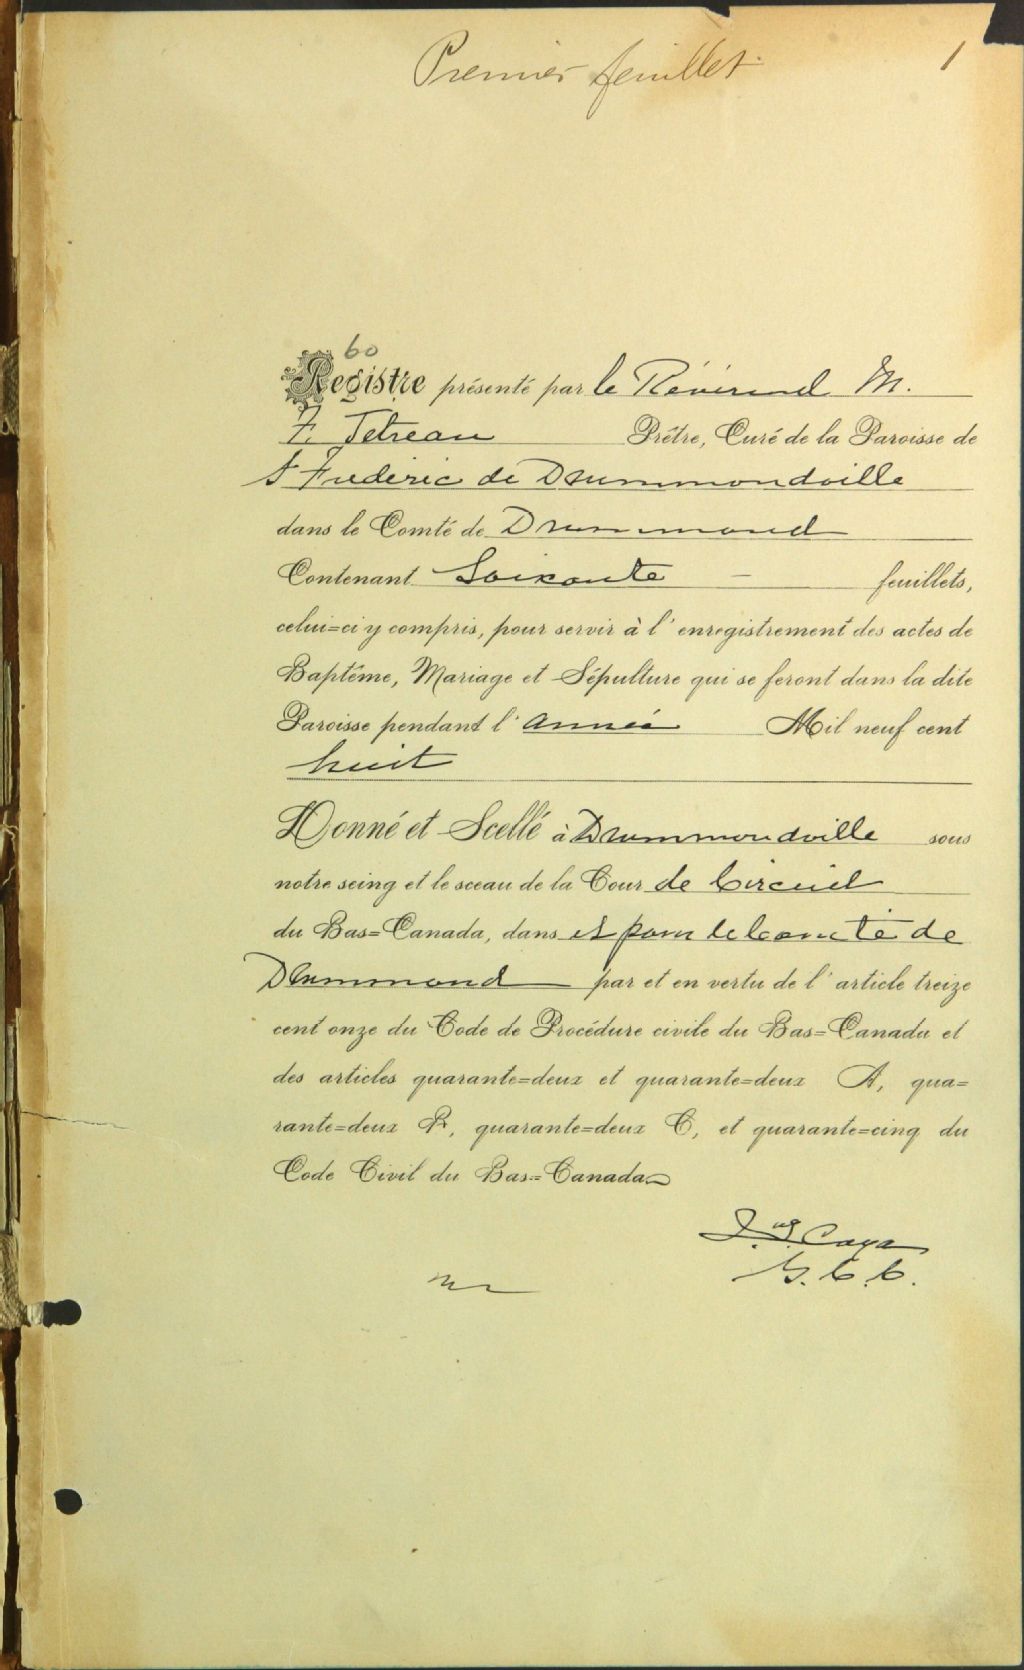 Premier feuillet
1
60
Registre présenté par le Révérend M.
F. Tetreau Prêtre, Curé de la Paroisse de
St Frederic de Drummondville
dans le Comté de Drummond
Contenant Soixante — feuillets,
celui=ci y compris, pour servir à l'enregistrement des actes de
Baptême, Mariage et Sépulture qui se feront dans la dite
Paroisse pendant l'année Mil neuf cent
huit
Donné et Scellé à Drummondville sous
notre seing et le sceau de la Cour de Circuit
du Bas=Canada, dans et pour le Comté de
Drummond par et en vertu de l'article treize
cent onze du Code de Procédure civile du Bas=Canada et
des articles quarante=deux et quarante=deux A, qua=
rante=deux B, quarante=deux C, et quarante=cinq du
Code Civil du Bas=Canada
Caya
G. C. C.